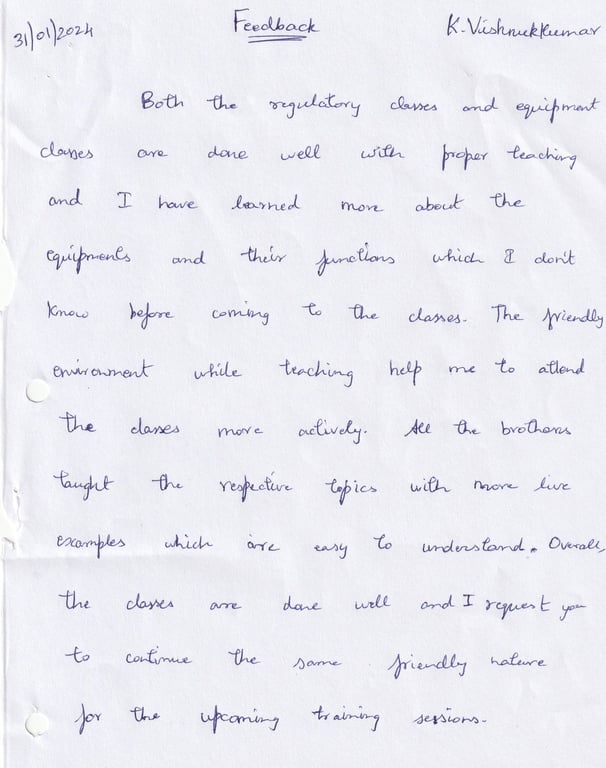 31/01/2024 Feedback K. Vishnukkumar
Both the regulatory classes and equipment
classes are done well with proper teaching
and I have learned more about the
equipments and their functions which I don't
know before coming to the classes. The friendly
environment while teaching help me to attend
the classes more actively. All the brothers
taught the respective topics with more live
examples which are easy to understand. Overall,
the classes are done well and I request you
to continue the same friendly nature
for the upcoming training sessions.